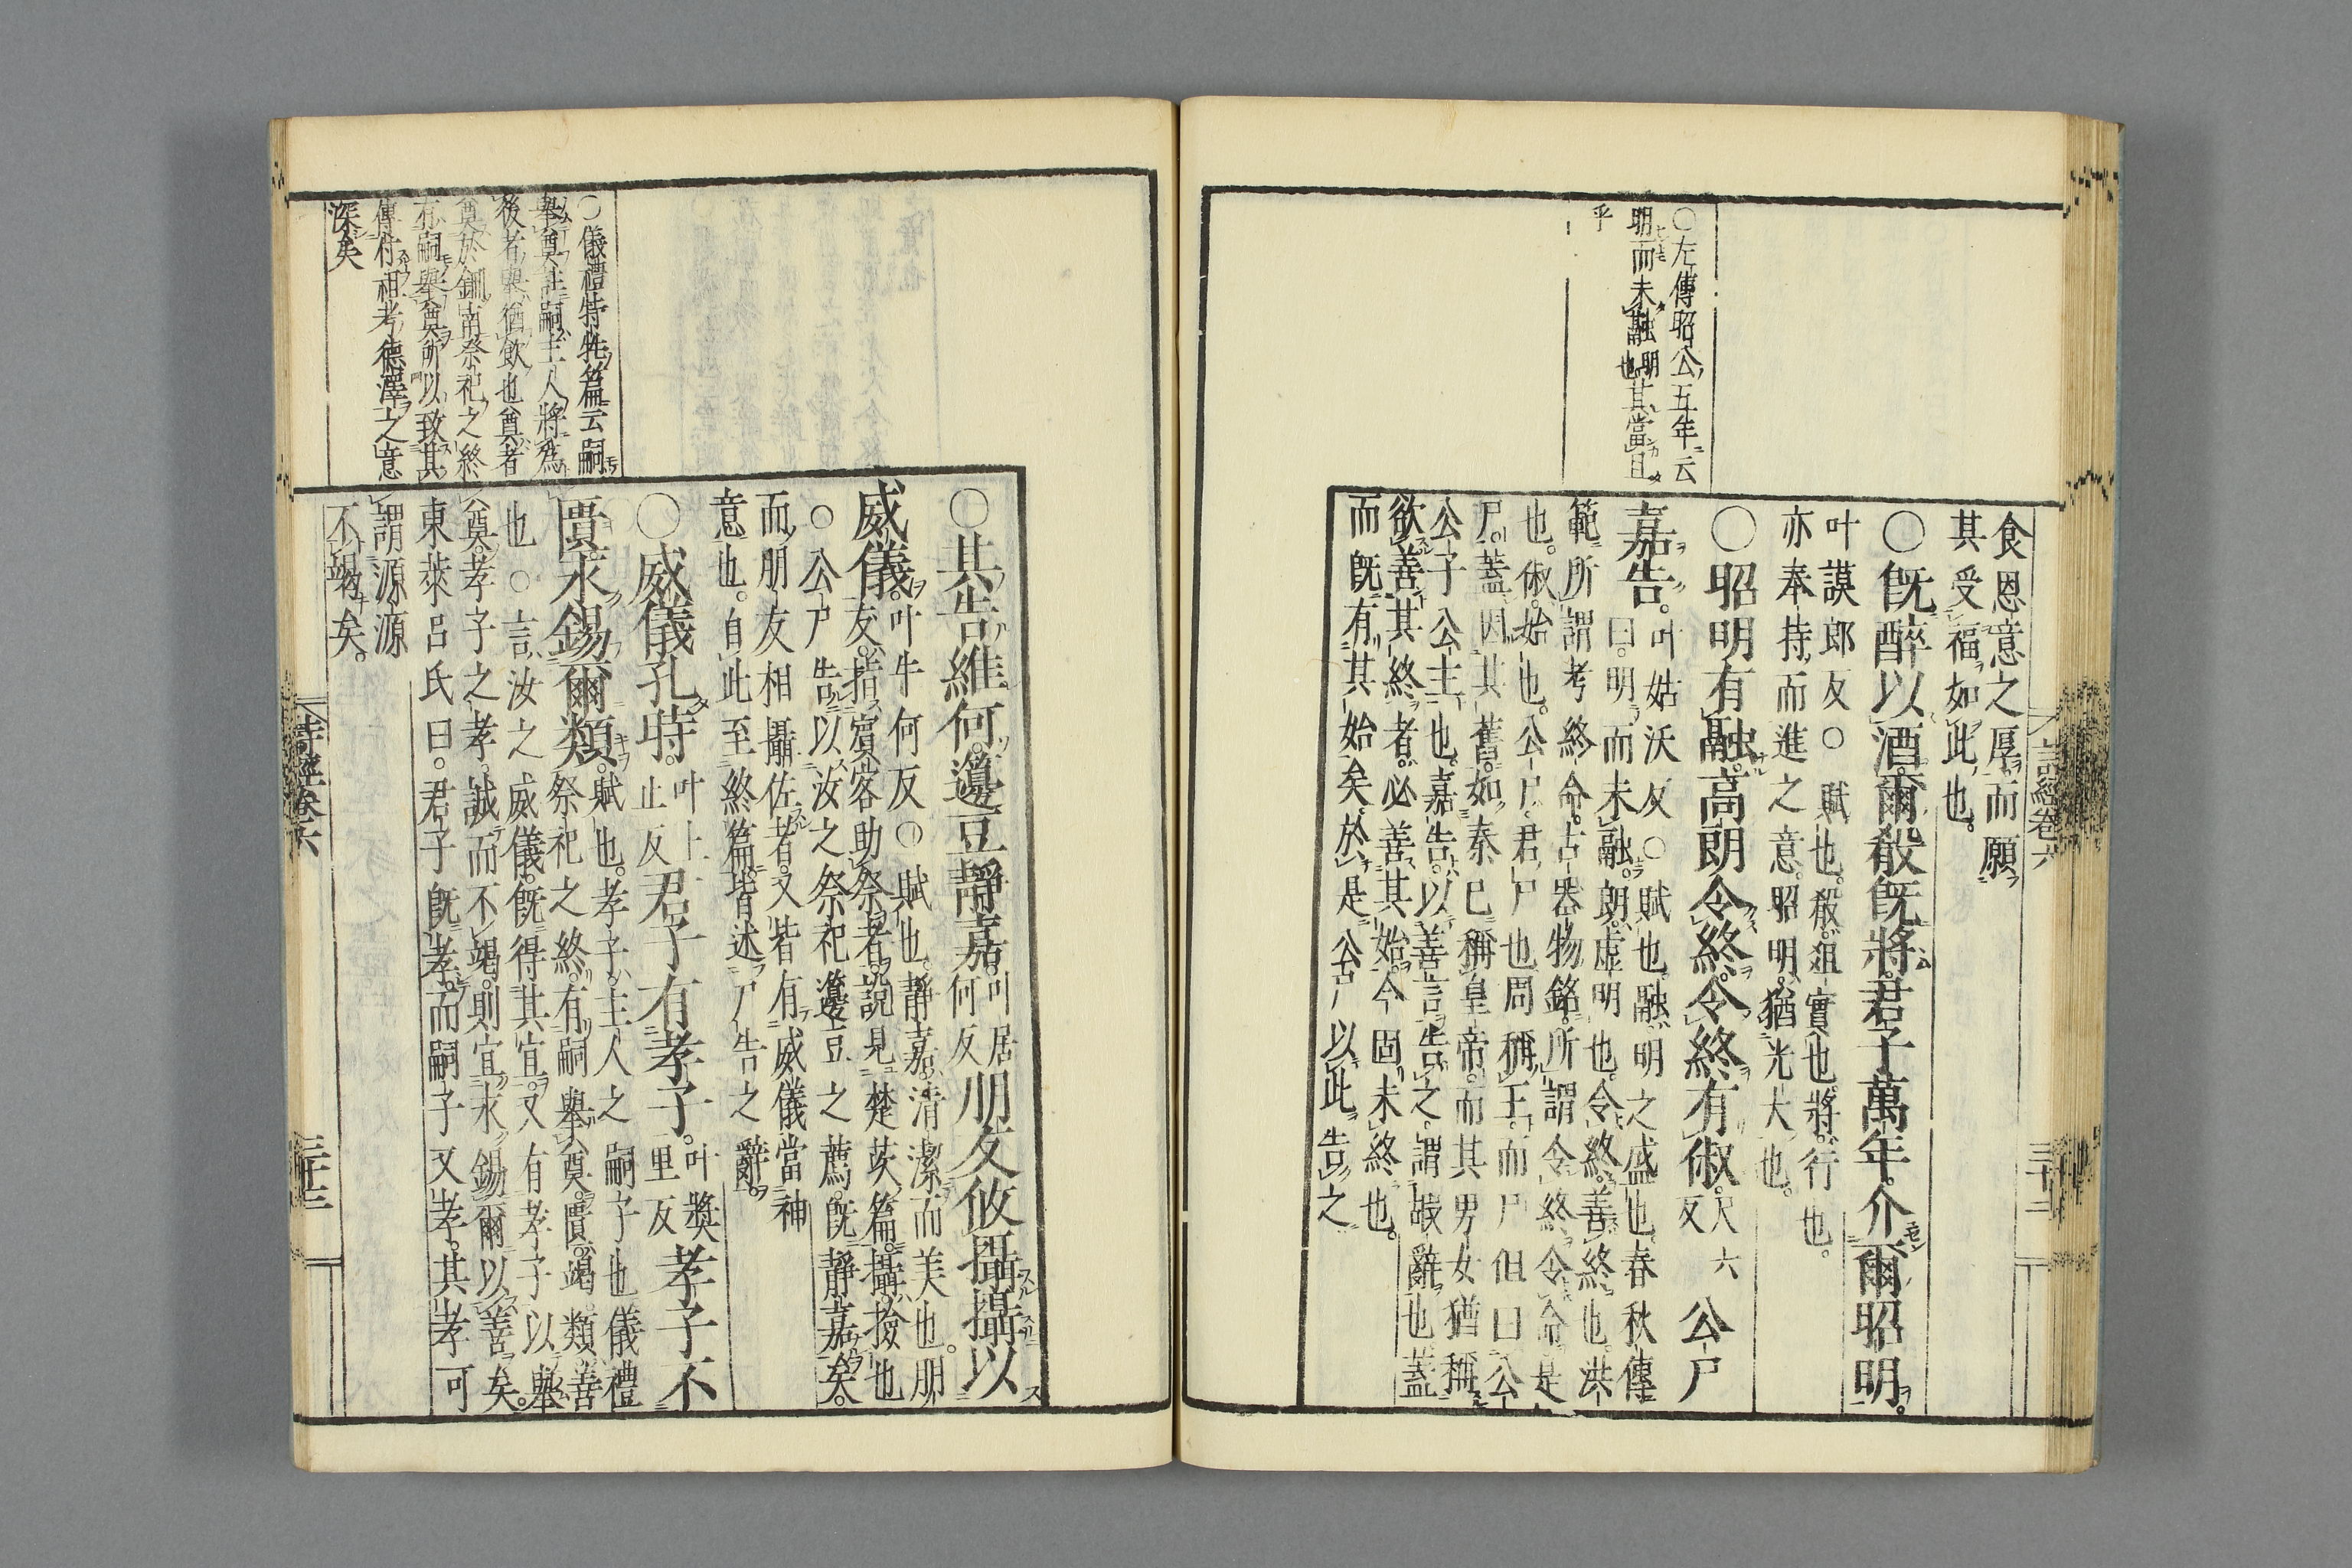 ○左傳昭公五年云
明而未融明也其當旦
乎
食恩意之厚而願
其受福如此也
○既醉以酒爾殽既將君子萬年介爾昭明
叶謨郎反○賦也殽俎實也將行也
亦奉持而進之意昭明猶光大也
○昭明有融高朗令終令終有俶尺六反公尸
嘉告叶姑沃反○賦也融明之盛也春秋傳
曰明而未融朗虛明也令終善終也洪
範所謂考終命古器物銘所謂令終令命是
也俶始也公尸君尸也周稱王而尸但曰公
尸蓋因其舊如秦已稱皇帝而其男女猶稱
公子公主也嘉告以善言告之謂嘏辭也蓋
欲善其終者必善其始今固未終也
而既有其始矣於是公尸以此告之
詩經卷六
三十二
○儀禮特牲篇云嗣
舉奠註嗣主人將為
後者舉猶飲也奠者
奠於鉶南祭祀之終
有嗣舉奠所以致其
傳付祖考德澤之意
深矣
○其告維何籩豆靜嘉叶居何反朋友攸攝攝以
威儀叶牛何反○賦也靜嘉清潔而美也朋
友指賓客助祭者說見楚茨篇攝撿也
○公尸告以汝之祭祀籩豆之薦既靜嘉矣
而朋友相攝佐者又皆有威儀當神
意也自此至終篇皆述尸告之辭
○威儀孔時叶上止反君子有孝子叶獎里反孝子不
匱永錫爾類賦也孝子主人之嗣子也儀禮
祭祀之終有嗣舉奠匱竭類善
也○言汝之威儀既得其宜又有孝子以舉
奠孝子之孝誠而不竭則宜永錫爾以善矣
東萊呂氏曰君子既孝而嗣子又孝其孝可
謂源源
不竭矣
詩經卷六
三十三